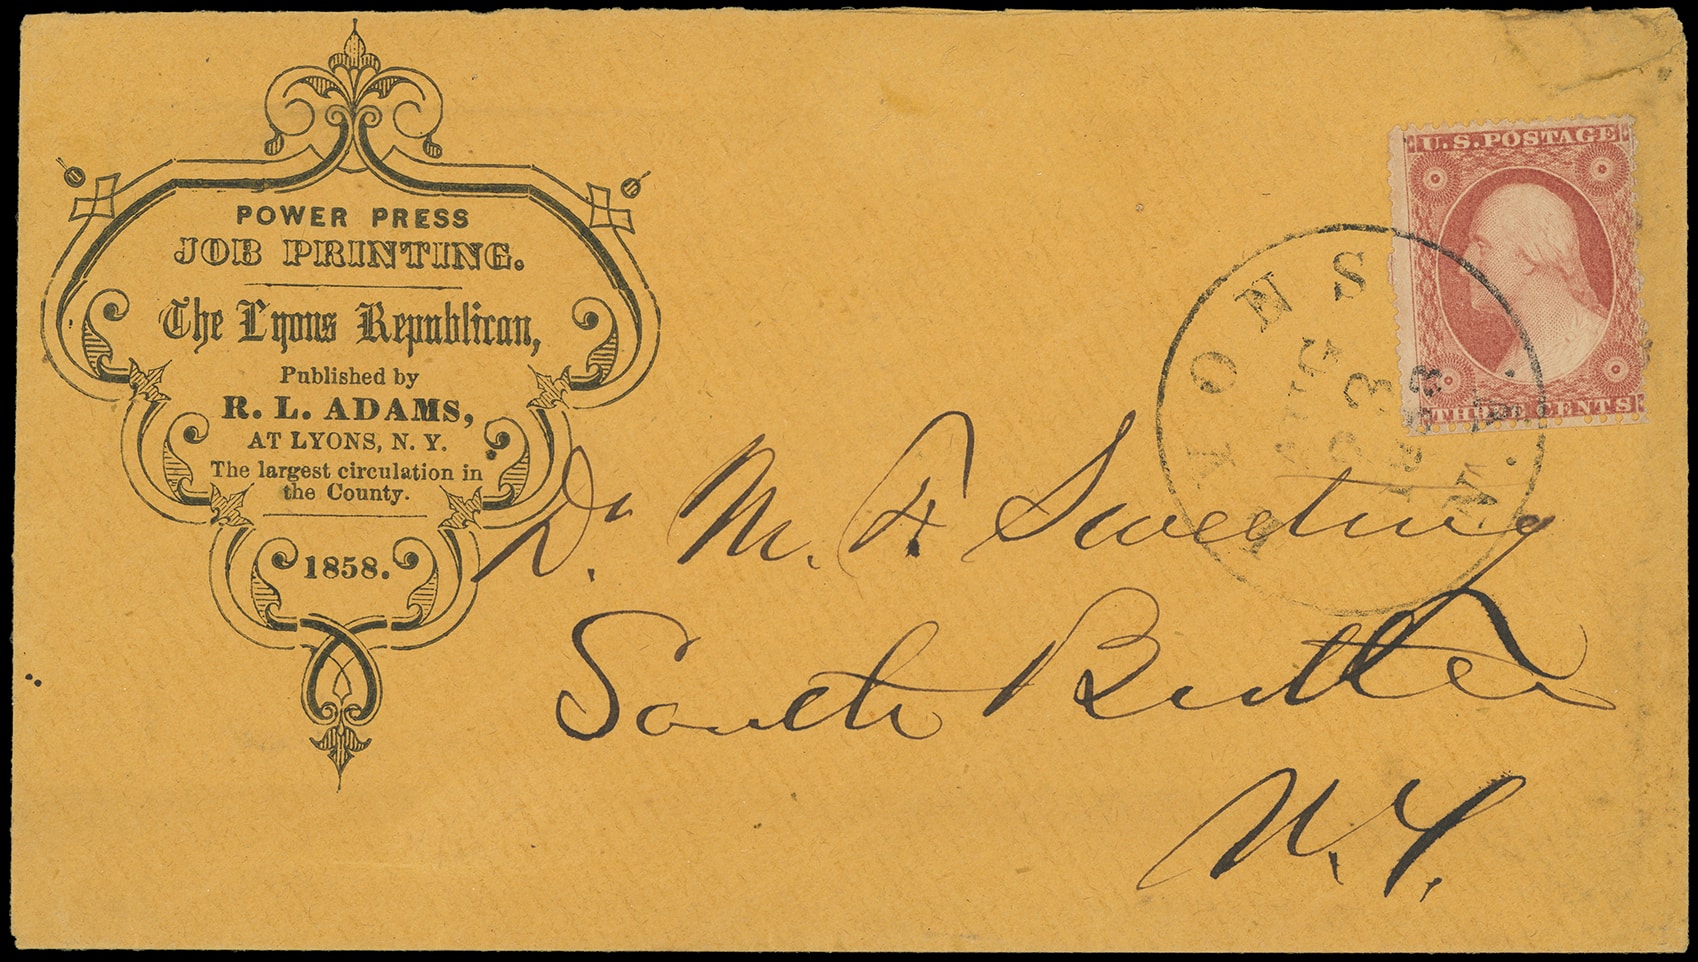 POWER PRESS
JOB PRINTING.
The Lyons Republican,
Published by
R. L. ADAMS,
AT LYONS, N. Y.
The largest circulation in
the County.
1858.
U.S. POSTAGE
THREE CENTS
LYONS N.Y.
AUG
23
1858
Dr. M. F. Sweeting
South Butler
N.Y.